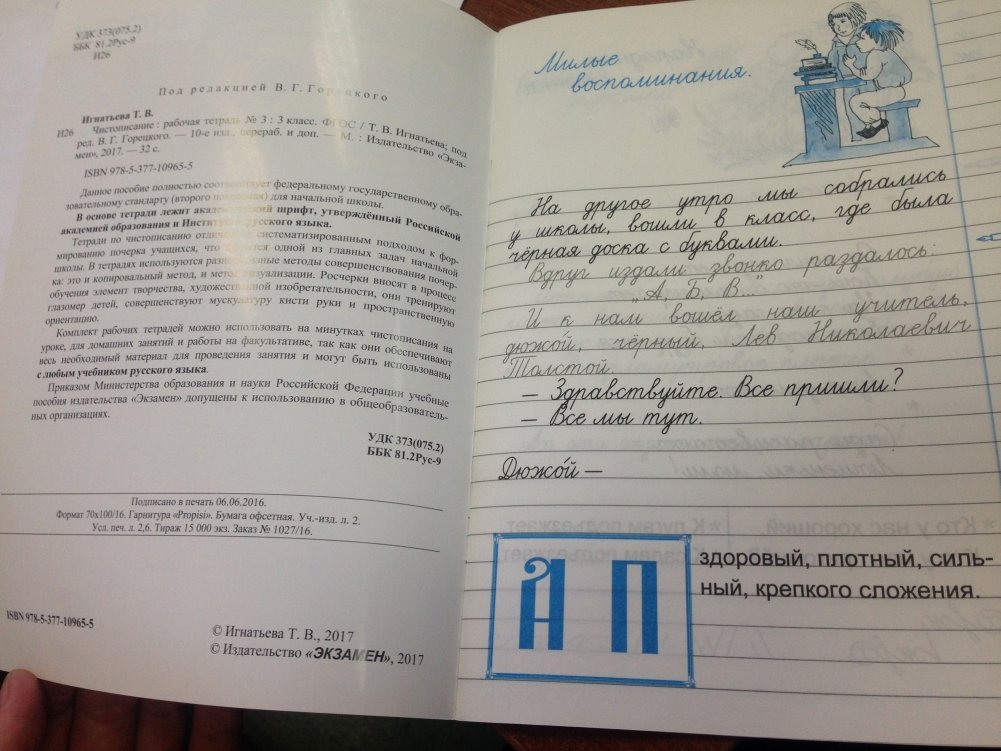 УДК 373(075.2)
ББК 81.2Рус-9
И26
Под редакцией В. Г. Горецкого
Игнатьева Т. В.
И26 Чистописание : рабочая тетрадь № 3 : 3 класс. ФГОС / Т. В. Игнатьева; под
ред. В. Г. Горецкого. — 10-е изд., перераб. и доп. — М. : Издательство «Экза-
мен», 2017. — 32 с.
ISBN 978-5-377-10965-5
Данное пособие полностью соответствует федеральному государственному обра-
зовательному стандарту (второго поколения) для начальной школы.
В основе тетради лежит академический шрифт, утверждённый Российской
академией образования и Институтом русского языка.
Тетради по чистописанию отличаются систематизированным подходом к фор-
мированию почерка учащихся, что является одной из главных задач начальной
школы. В тетрадях используются разнообразные методы совершенствования почер-
ка: это и копировальный метод, и метод визуализации. Росчерки вносят в процесс
обучения элемент творчества, художественной изобретательности, они тренируют
глазомер детей, совершенствуют мускулатуру кисти руки и пространственную
ориентацию.
Комплект рабочих тетрадей можно использовать на минутках чистописания на
уроке, для домашних занятий и работы на факультативе, так как они обеспечивают
весь необходимый материал для проведения занятия и могут быть использованы
с любым учебником русского языка.
Приказом Министерства образования и науки Российской Федерации учебные
пособия издательства «Экзамен» допущены к использованию в общеобразователь-
ных организациях.
УДК 373(075.2)
ББК 81.2Рус-9
Подписано в печать 06.06.2016.
Формат 70х100/16. Гарнитура «Propisi». Бумага офсетная. Уч.-изд. л. 2.
Усл. печ. л. 2,6. Тираж 15 000 экз. Заказ № 1027/16.
ISBN 978-5-377-10965-5
© Игнатьева Т. В., 2017
© Издательство «ЭКЗАМЕН», 2017
Милые
воспоминания.
На другое утро мы собрались
у школы, вошли в класс, где была
чёрная доска с буквами.
Вдруг издали звонко раздалось:
„А, Б, В..."
И к нам вошёл наш учитель,
дюжой, чёрный, Лев Николаевич
Толстой.
— Здравствуйте. Все пришли?
— Все мы тут.
Дюжо́й —
А П
здоровый, плотный, силь-
ный, крепкого сложения.